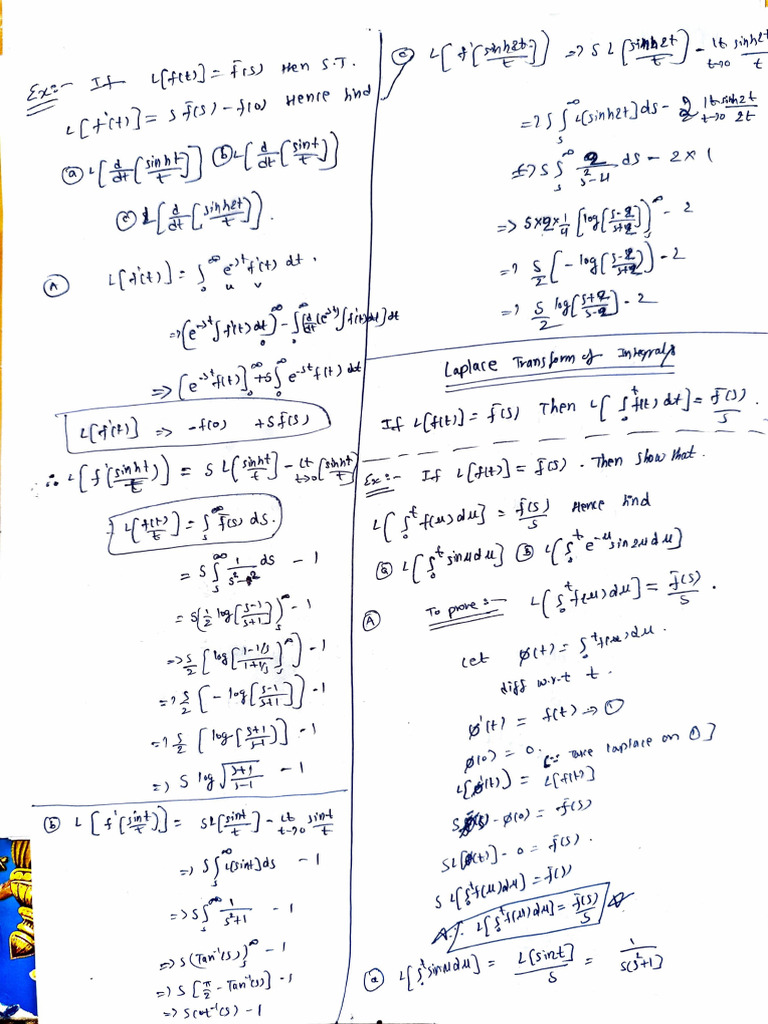 Ex:- If L[f(t)] = f̄(s) then S.T.
L[f'(t)] = s f̄(s) - f(0) Hence find
ⓐ L[d/dt[sinht/t]] ⓑ L[d/dt[sint/t]]
ⓒ L[d/dt[sinh2t/t]].
Ⓐ L[f'(t)] = ∫₀^∞ e^-st f'(t) dt.
u v
=> [e^-st ∫f'(t) dt]₀^∞ - ∫₀^∞ [d/dt(e^-st) ∫f'(t) dt] dt
=> [e^-st f(t)]₀^∞ + s∫₀^∞ e^-st f(t) dt
L[f'(t)] => -f(0) + s f̄(s)
∴ L[f'(sinht/t)] = s L[sinht/t] - Lt t→0 [sinht/t]
L[f(t)/t] = ∫ₛ^∞ f̄(s) ds.
= s∫ₛ^∞ 1/(s²-1²) ds - 1
= s[1/2 log[(s-1)/(s+1)]]ₛ^∞ - 1
=> s/2 [log[(1-1/s)/(1+1/s)]ₛ^∞] - 1
=> s/2 [-log[(s-1)/(s+1)]] - 1
=> s/2 [log[(s+1)/(s-1)]] - 1
=> s log √((s+1)/(s-1)) - 1
ⓑ L[f'(sint/t)] = sL[sint/t] - Lt t→0 sint/t
=> s∫ₛ^∞ L[sint] ds - 1
=> s∫ₛ^∞ 1/(s²+1) - 1
=> s(Tan⁻¹(s))ₛ^∞ - 1
=> s[π/2 - Tan⁻¹(s)] - 1
=> s cot⁻¹(s) - 1
ⓒ L[f'[sinh2t/t]] => s L[sinh2t/t] - Lt t→0 sinh2t/t
=> s∫ₛ^∞ L[sinh2t] ds - 2 Lt t→0 sinh2t/2t
=> s∫ₛ^∞ 2/(s²-4) ds - 2×1
=> s×2×1/4 [log[(s-2)/(s+2)]]ₛ^∞ - 2
=> s/2 [-log[(s-2)/(s+2)]] - 2
=> s/2 log[(s+2)/(s-2)] - 2
Laplace Transform of Integrals
If L[f(t)] = f̄(s) Then L[∫₀^t f(t) dt] = f̄(s)/s.
Ex:- If L[f(t)] = f̄(s). Then show that.
L[∫₀^t f(u) du] = f̄(s)/s Hence find
ⓐ L[∫₀^t sinu du] ⓑ L[∫₀^t e^-u sin2u du]
Ⓐ To prove:- L[∫₀^t f(u) du] = f̄(s)/s.
Let ø(t) = ∫₀^t f(u) du.
diff w.r.t t.
ø'(t) = f(t) => ①
ø(0) = 0. [∵ Take laplace on ①]
L[ø'(t)] = L[f(t)]
- ø(0) = f̄(s)
sL[ø(t)] - 0 = f̄(s).
s L[∫₀^t f(u) du] = f̄(s)
∴ L[∫₀^t f(u) du] = f̄(s)/s
ⓐ L[∫₀^t sinu du] = L[sint]/s = 1/(s(s²+1))